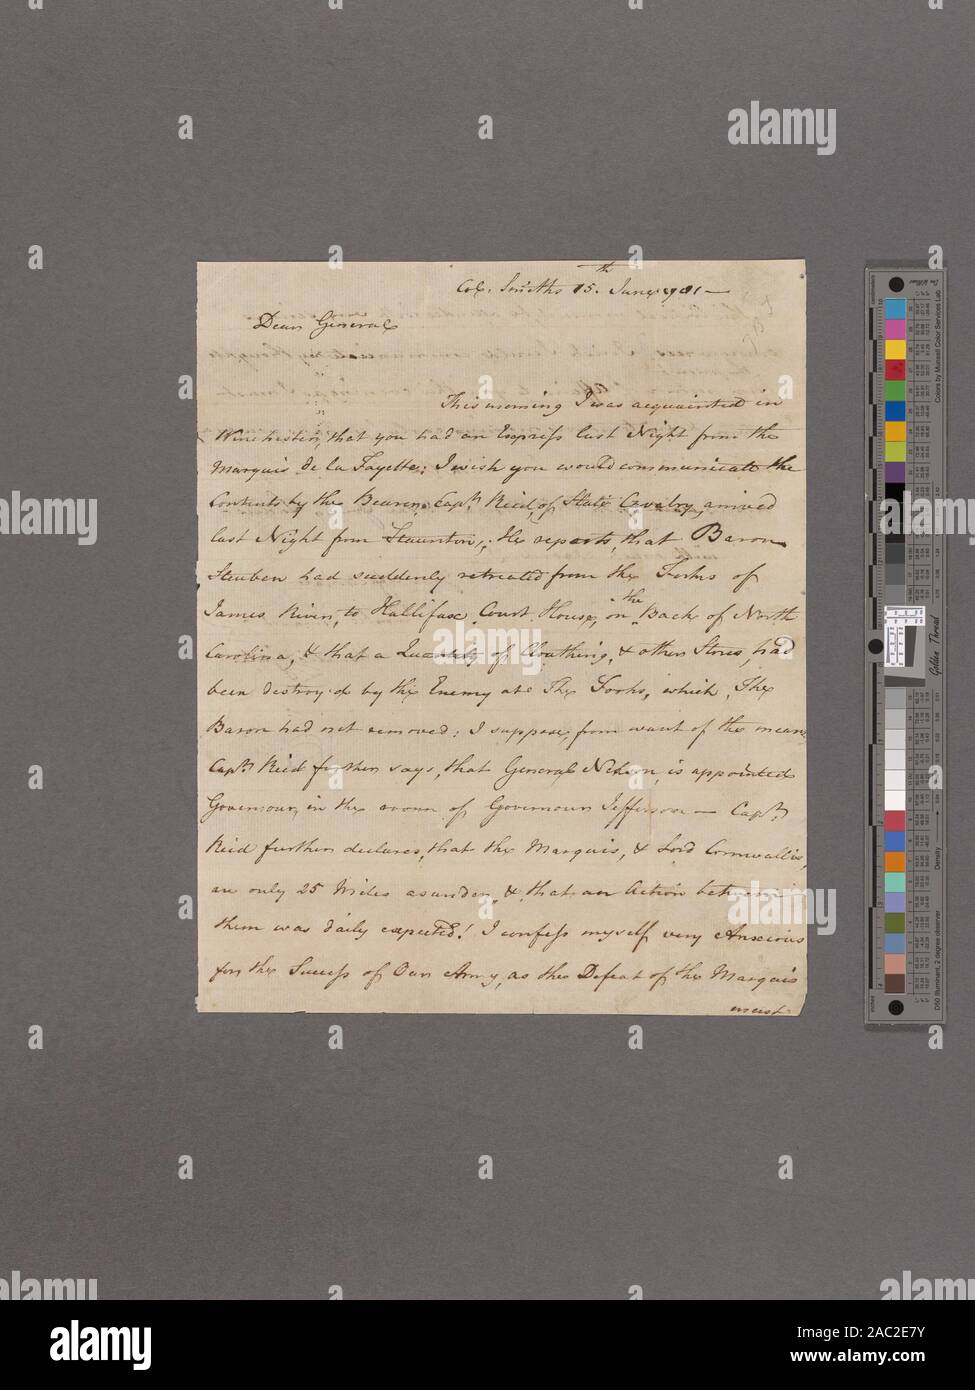 Col. Smiths 15.th June 1781—
Dear General
This morning I was acquainted in
Winchester, that you had an Express last Night from the
Marquis de la Fayette: I wish you would communicate the
Contents by the Bearer, Capt. Reid, of State Cavalry, arrived
last Night from Staunton,; He reports, that Baron
Steuben had suddenly retreated from the Forks of
James River, to Hallifax Court House, on the Back of North
Carolina, & that a Quantity of Cloathing, & other Stores, had
been destroy'd by the Enemy at The Forks, which, The
Baron had not removed: I suppose, from want of the means
Capt. Reid further says, that General Nelson, is appointed
Governour, in the room of Governour Jefferson — Capt.
Reid further declares, that the Marquis, & Lord Cornwallis,
are only 25 Miles asunder, & that an Action between
them was daily expected! I confess myself very Anxious
for the Success of Our Army, as the Defeat of the Marquis
must
alamy
a
Golden Thread
Colors by Munsell Color Services Lab
Density
D50 Illuminant, 2 degree observer
centimeters
inches
alamy
Image ID: 2AC2E7Y
www.alamy.com